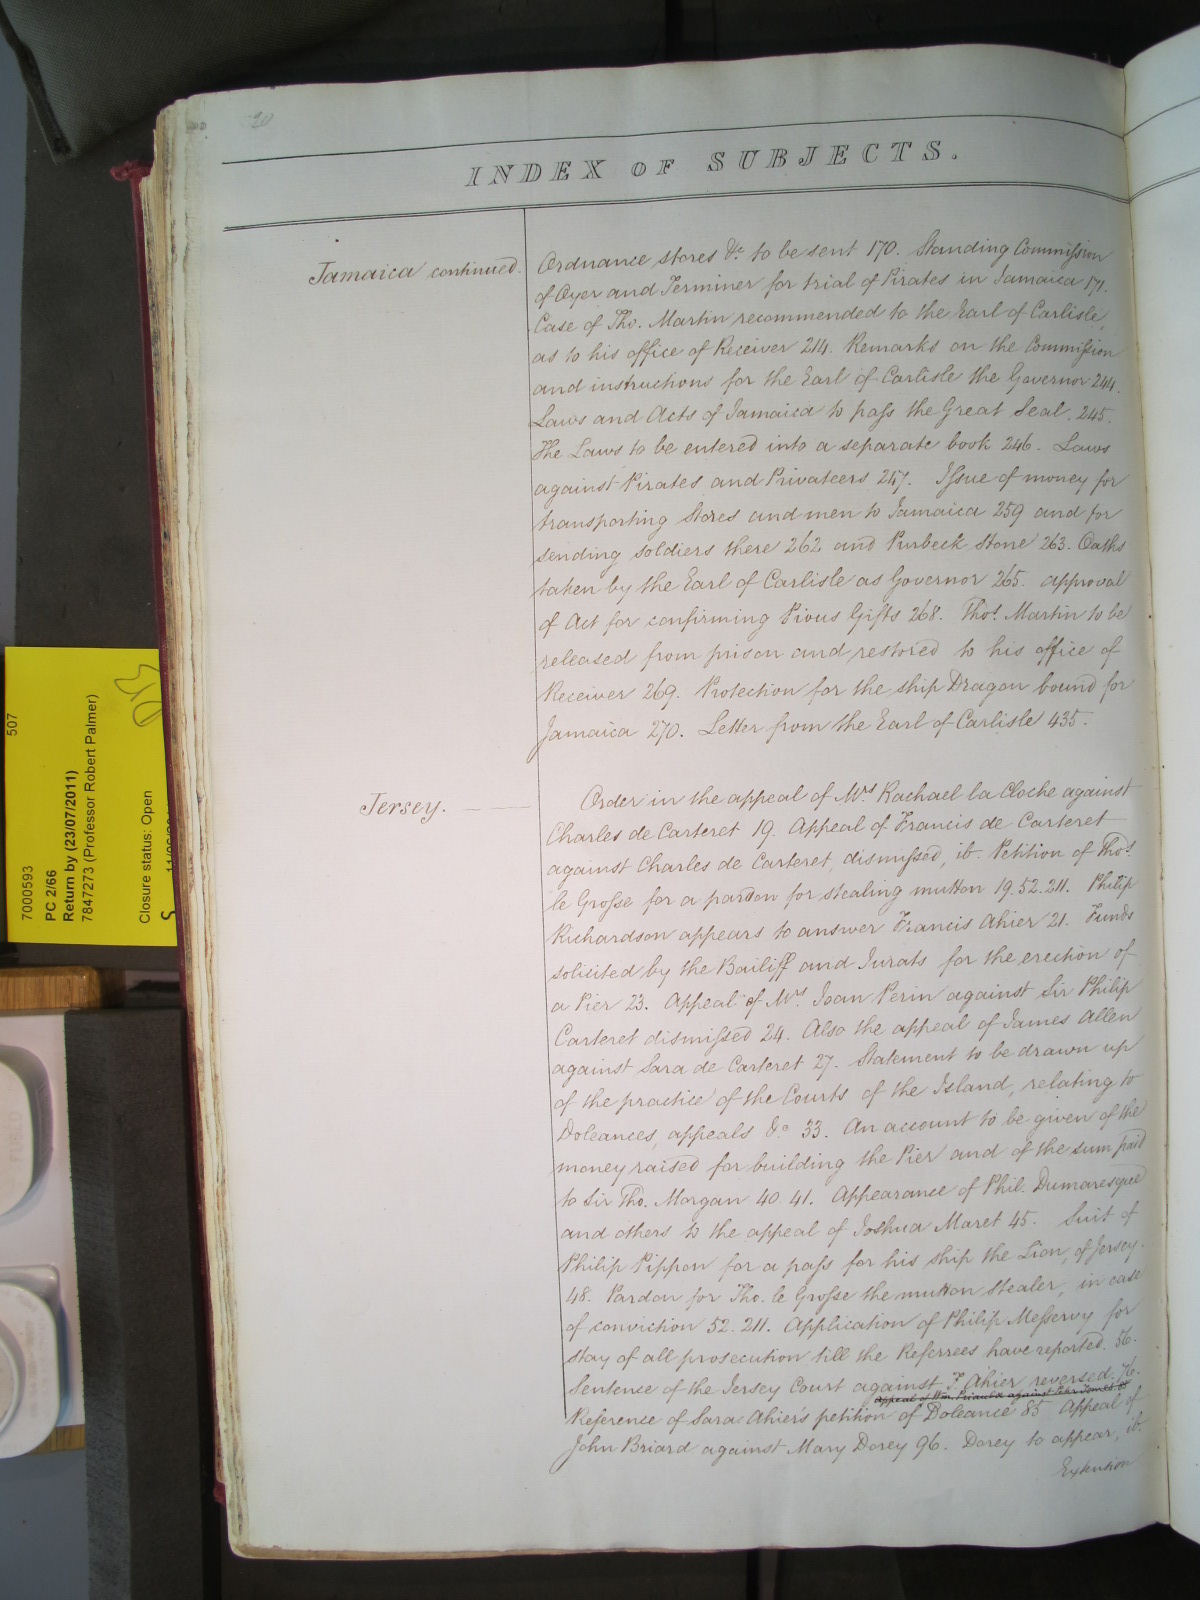 20
INDEX OF SUBJECTS.
Jamaica continued.
Ordnance stores &c. to be sent 170. Standing Commission
of Oyer and Terminer for trial of Pirates in Jamaica 171.
Case of Tho. Martin recommended to the Earl of Carlisle,
as to his office of Receiver 214. Remarks on the Commission
and instructions for the Earl of Carlisle the Governor 244.
Laws and Acts of Jamaica to pass the Great Seal. 245.
The Laws to be entered into a separate book 246. Laws
against Pirates and Privateers 247. Issue of money for
transporting Stores and men to Jamaica 259 and for
sending soldiers there 262 and Purbeck Stone 263. Oaths
taken by the Earl of Carlisle as Governor 265. approval
of Act for confirming Pious Gifts 268. Thos. Martin to be
released from prison and restored to his office of
Receiver 269. Protection for the ship Dragon bound for
Jamaica 270. Letter from the Earl of Carlisle 435.
Jersey.
Order in the appeal of Mrs Rachael la Cloche against
Charles de Carteret 19. Appeal of Francis de Carteret
against Charles de Carteret, dismissed, ib. Petition of Thos.
le Grosse for a pardon for stealing mutton 19.52.211. Philip
Richardson appears to answer Francis Ahier 21. Funds
solicited by the Bailiff and Jurats for the erection of
a Pier 23. Appeal of Mrs Joan Perin against Sir Philip
Carteret dismissed 24. Also the appeal of James Allen
against Sara de Carteret 27. Statement to be drawn up
of the practice of the Courts of the Island, relating to
Doleances, appeals &c 33. An account to be given of the
money raised for building the Pier and of the sum paid
to Sir Tho. Morgan 40 41. Appearance of Phil. Dumaresque
and others to the appeal of Joshua Maret 45. Suit of
Philip Pippon for a pass for his ship the Lion, of Jersey.
48. Pardon for Tho. le Grosse the mutton stealer, in case
of conviction 52.211. Application of Philip Messervy for
stay of all prosecution till the Referrees have reported. 56.
Sentence of the Jersey Court against F. Ahier reversed. 76.
Appeal of Wm. Priaulx against
Reference of Sara Ahier's petition of Doleance 85 Appeal of
John Briard against Mary Dorey 96. Dorey to appear, ib.
Extension
507
7000593
PC 2/66
Return by (23/07/2011)
7847273 (Professor Robert Palmer)
Closure status: Open